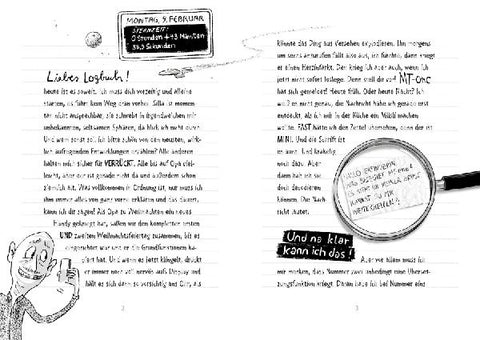 MONTAG, 9. FEBRUAR
STERNZEIT:
0 Stunden + 43 Minuten
36,9 Sekunden
Liebes Logbuch!
heute ist es soweit. Ich muss dich vorzeitig und alleine
starten, es führt kein Weg dran vorbei. Silla ist momen-
tan nicht ansprechbar, sie schwebt in irgendwelchen mir
unbekannten, seltsamen Sphären, da blick ich nicht durch.
Und wem sonst soll ich bitte schön von den neusten, wirk-
lich aufregenden Entwicklungen erzählen? Alle anderen
halten mich sicher für VERRÜCKT. Alle bis auf Opa viel-
leicht, aber der ist gerade nicht da und außerdem schon
ziemlich alt. Was vollkommen in Ordnung ist, nur muss ich
ihm immer alles von ganz vorne erklären und das dauert,
kann ich dir sagen! Als Opa zu Weihnachten ein neues
Handy gekriegt hat, saßen wir den kompletten ersten
UND zweiten Weihnachtsfeiertag zusammen, bis es
eingerichtet war und er die Grundfunktionen ka-
piert hat. Und wenn es jetzt klingelt, drückt
er immer noch voll nervös aufs Display und
hält es sich dann so vorsichtig ans Ohr, als
2
könnte das Ding aus Versehen explodieren. Ihm morgens
um
einen Herzinfarkt. Den krieg ich aber auch, wenn ich
jetzt nicht sofort loslege. Denn stell dir vor! MT-ONE
hat sich gemeldet! Heute früh. Oder heute Nacht? Ich
weiß es nicht genau, der Nachricht habe ich gerade erst
entdeckt, als ich mir in der Küche ein Müsli machen
wollte. FAST hätte ich den Zettel übersehen, denn der ist
MINI. Und die Schrift ist
es auch. Und krakelig
noch dazu. Aber
dann hab ich sie
doch decodieren
können. Die Nach-
richt lautet:
Und na klar
kann ich das!
Aber vor allem muss ich
mir merken, dass Nummer zwei unbedingt eine Überset-
zungsfunktion kriegt. Daran habe ich bei Nummer eins
3